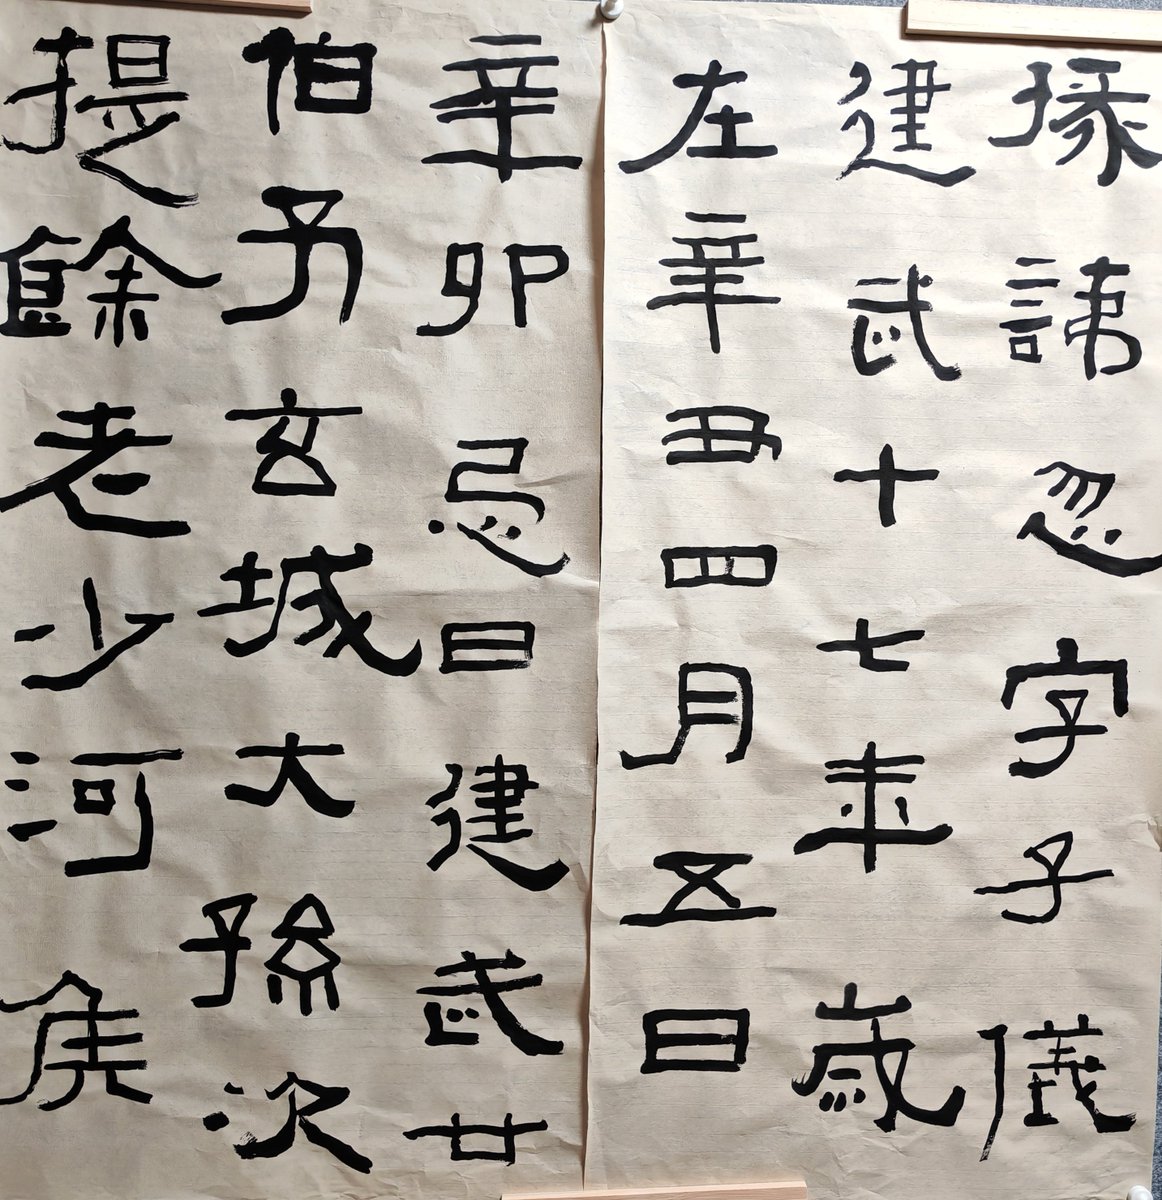 掾諱忽字子儀
建武十七年歲
在辛丑四月五日
辛卯忌日建武廿
伯予玄城大孫次
提餘老少河矦